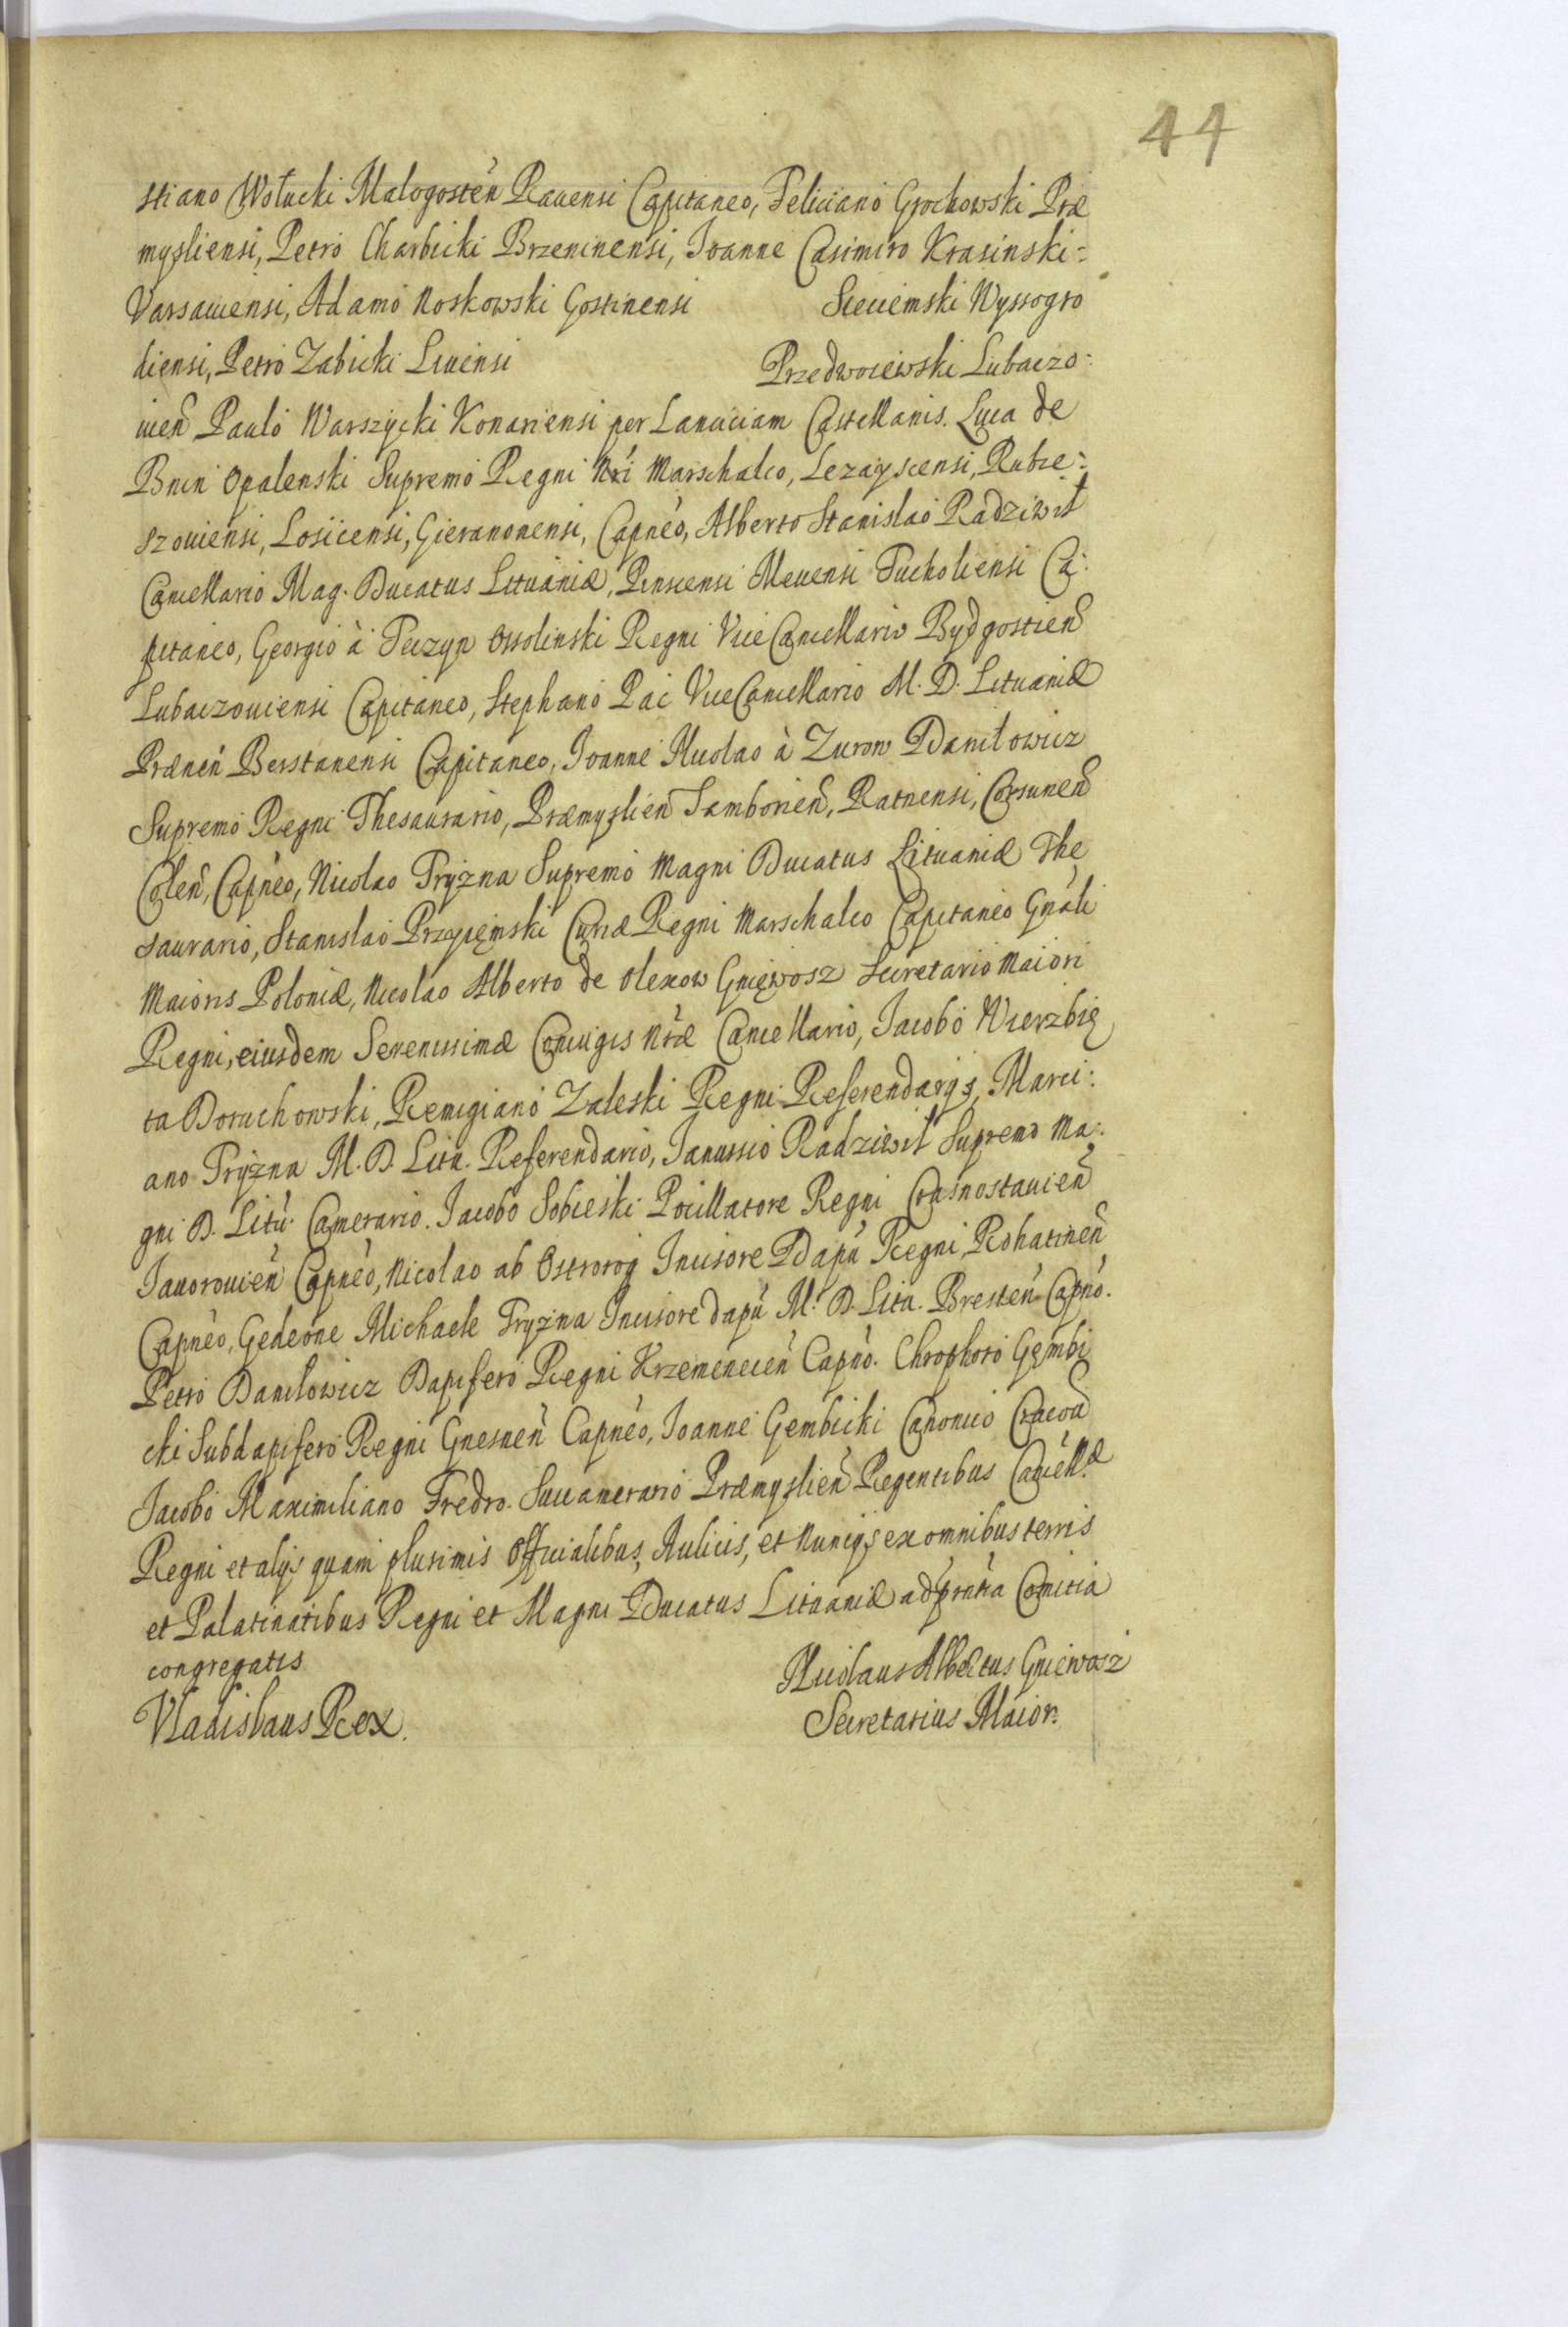 44
stiano Wołucki Malogosteń Rauensi Capitaneo, Feliciano Grochowski Præ
mysliensi, Petro Charbicki Brzeninensi, Joanne Casimiro Krasinski=
Varsauiensi, Adamo Noskowski Gostinensi Sieciemski Wyssogro
diensi, Petro Zabicki Liuensi Przedwoiewski Lubaczo=
uień Paulo Warszycki Konariensi per Lanciciam Castellanis. Luca de
Bnin Opalenski Supremo Regni Nri Marschalco, Lezayscensi, Rubie=
szouiensi, Losicensi, Gieranonensi, Capneo, Alberto Stanislao Radziwił
Cancellario Mag. Ducatus Lituaniæ, Pinscensi Meuensi Tucholiensi Ca:
pitaneo, Georgio à Teczyn Ossolinski Regni ViceCancellario Bydgostień
Lubaczouiensi Capitaneo, Stephano Pac ViceCancellario M. D. Lituaniæ
Præneń Berstanensi Capitaneo, Joanne Nicolao à Zurow Daniłowicz
Supremo Regni Thesaurario, Præmyslień Samborień, Ratnensi, Corsuneń
Coleń, Capneo, Nicolao Tryzna Supremo Magni Ducatus Lituaniæ The
saurario, Stanislao Przyięmski Curiæ Regni Marschalco Capitaneo Gnali
Maioris Poloniæ, Nicolao Alberto de Olexow Gnięwosz Secretario Maiori
Regni, eiusdem Serenissimæ Coniugis Nræ Cancellario, Jacobo Wierzbię
ta Doruchowski, Remigiano Zaleski Regni Referendarijs, Marci:
ano Tryzna M. D. Litu. Referendario, Janussio Radziwił Supremo Ma:
gni D. Litu. Camerario. Jacobo Sobieski Pocillatore Regni Crasnostauień
Jauorouień Capneo, Nicolao ab Ostrorog Incisore Dapu Regni Rohatineń
Capneo, Gedeone Michaele Tryzna Incisore dapu M. D. Litu. Bresteń Capno.
Petro Daniłowicz Dapifero Regni Krzemenecień Capno. Chrophoro Gembi
cki Subdapifero Regni Gnesneń Capneo, Joanne Gembicki Canonico Cracou
Jacobo Maximiliano Fredro. Succamerario Præmyslień Regentibus Cancellæ
Regni et alijs quam plurimis Officialibus, Aulicis, et Nuncijs ex omnibus terris
et Palatinatibus Regni et Magni Ducatus Lituaniæ ad prntia Comitia
congregatis
Nicolaus Albertus Gniewosz
Vladislaus Rex.
Secretarius Maior.